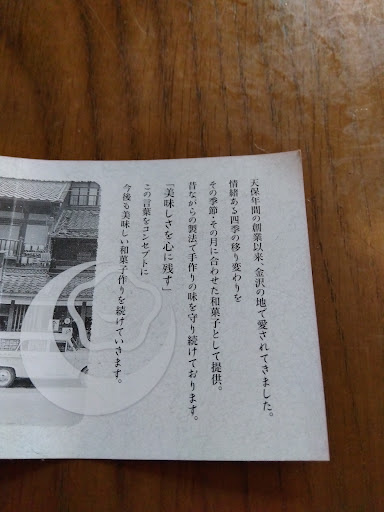 天保年間の創業以来、金沢の地で愛されてきました。
情緒ある四季の移り変わりを
その季節・その月に合わせた和菓子として提供。
昔ながらの製法で手作りの味を守り続けております。
「美味しさを心に残す」
この言葉をコンセプトに
今後も美味しい和菓子作りを続けていきます。